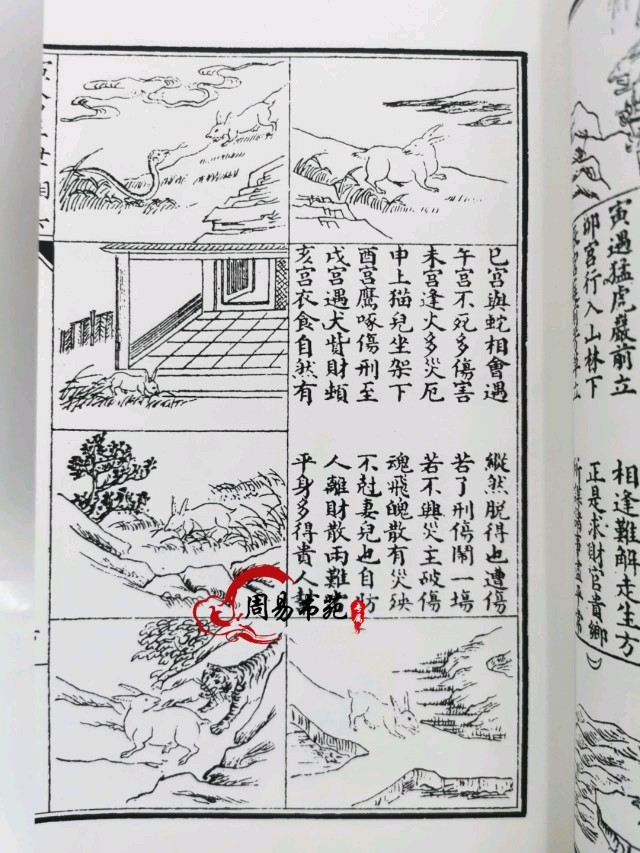 寅遇猛虎巖前立
相逢難解走生方
卯宮行入山林下
正是求財官貴鄉
所謀諸事盡平常
巳宮與蛇相會遇
縱然脫得也遭傷
午宮不死多傷害
苦了刑傷鬧一塲
未宮逢火多災厄
若不興災主破傷
申上猫兒坐架下
魂飛魄散有災殃
酉宮鷹啄傷刑至
不尅妻兒也自妨
戌宮遇犬貲財
人離財散兩難
亥宮衣食自然有
平身多得貴人
周易书苑
专属